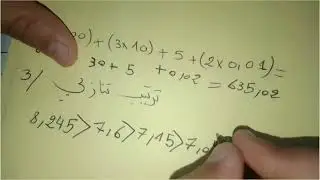 00) + (3x10) + 5 + (2x0,01) =
30 + 5 + 0,02 = 635,02
3/ ترتيب تنازلي
8,245 > 7,6 > 7,15 > 7,0